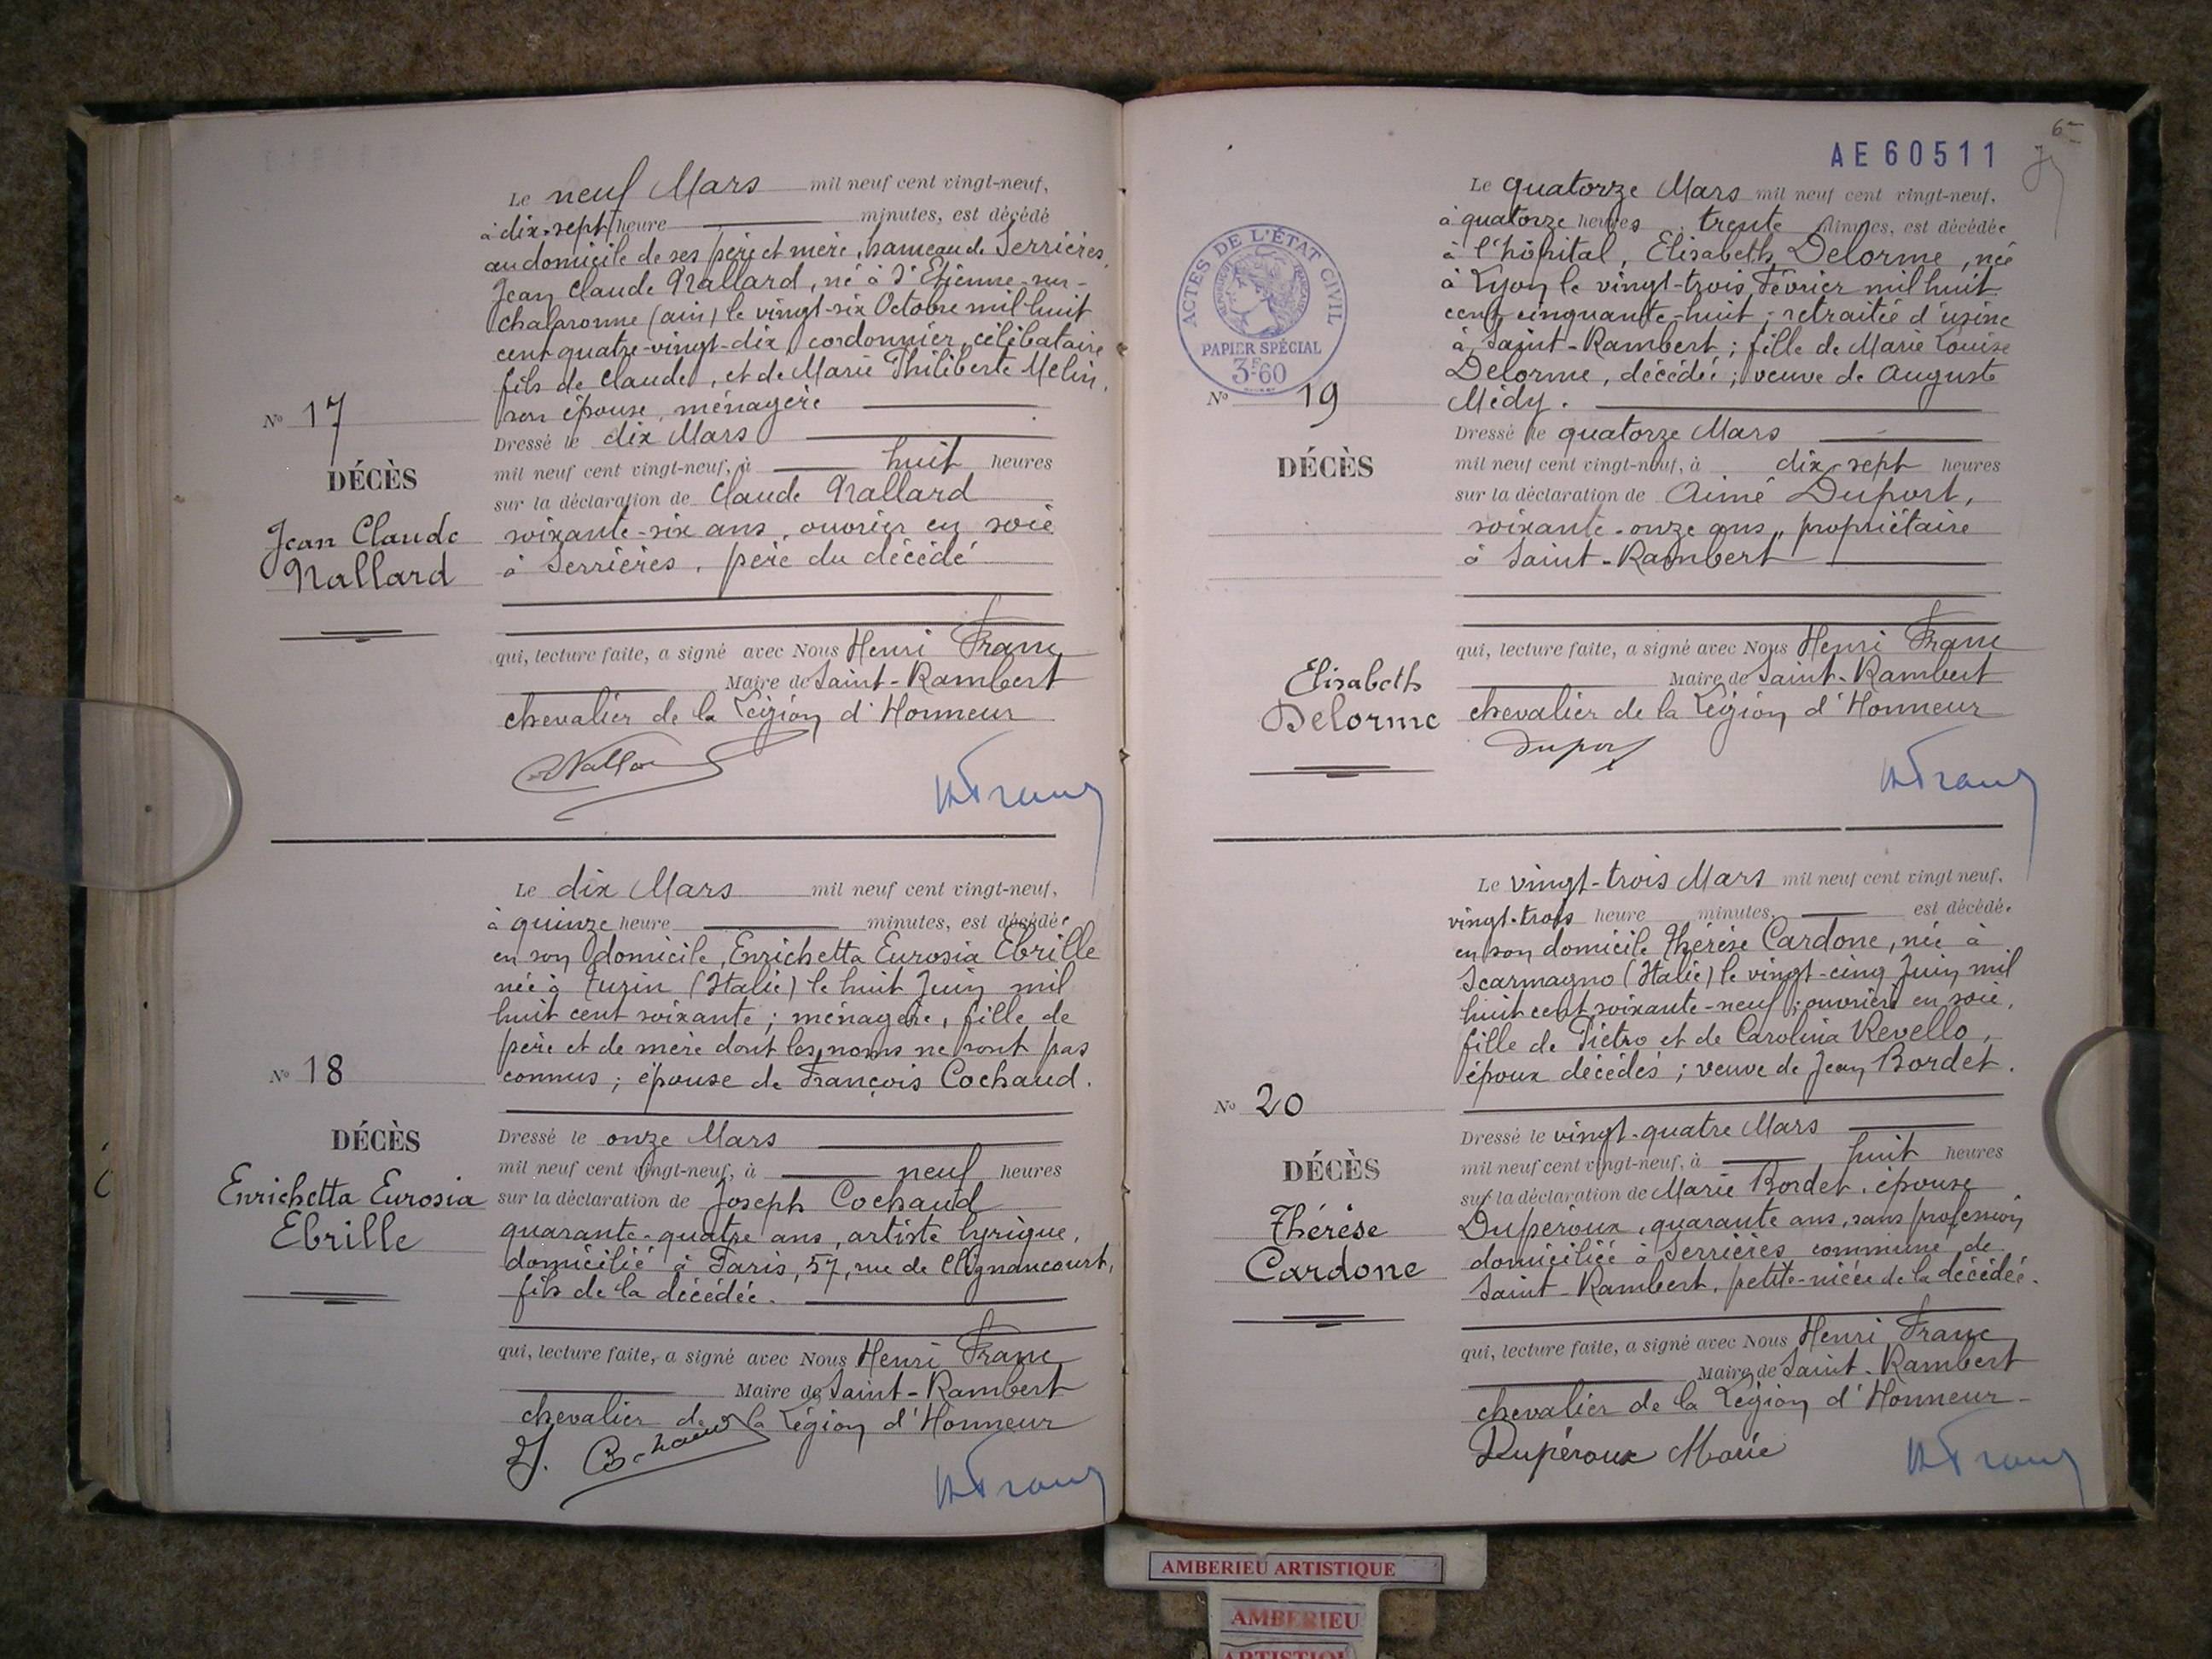 Le neuf Mars mil neuf cent vingt-neuf,
à dix-sept heure minutes, est décédé
au domicile de ses père et mère, hameau de Serrières,
Jean Claude Nallard, né à St Etienne-sur-
Chalaronne (ain) le vingt-six Octobre mil huit
cent quatre-vingt-dix, cordonnier, célibataire
fils de Claude, et de Marie Philiberte Melin,
son épouse, ménagère
Nº 17
DÉCÈS
Jean Claude
Nallard
Dressé le dix Mars
mil neuf cent vingt-neuf, à huit heures
sur la déclaration de Claude Nallard
soixante-six ans, ouvrier en soie
à Serrières, père du décédé
qui, lecture faite, a signé avec Nous Henri Franc
Maire de Saint-Rambert
chevalier de la Légion d'Honneur
HFranc
Le dix Mars mil neuf cent vingt-neuf,
à quinze heure minutes, est décédée
en son domicile, Enrichetta Eurosia Ebrille
née à Turin (Italie) le huit Juin mil
huit cent soixante ; ménagère, fille de
père et de mère dont les noms ne sont pas
connus ; épouse de François Cochaud.
Nº 18
DÉCÈS
Enrichetta Eurosia
Ebrille
Dressé le onze Mars
mil neuf cent vingt-neuf, à neuf heures
sur la déclaration de Joseph Cochaud
quarante-quatre ans, artiste lyrique,
domicilié à Paris, 57, rue de Clignancourt,
fils de la décédée.
qui, lecture faite, a signé avec Nous Henri Franc
Maire de Saint-Rambert
chevalier de la Légion d'Honneur
J. Cochaud
HFranc
6
AE60511
ACTES DE L'ÉTAT CIVIL
PAPIER SPÉCIAL
3F60
Le quatorze Mars mil neuf cent vingt-neuf,
à quatorze heures trente minutes, est décédée
à l'hôpital, Elisabeth Delorme, née
à Lyon le vingt-trois Février mil huit
cent cinquante-huit ; retraitée d'usine
à Saint-Rambert ; fille de Marie Louise
Delorme, décédée ; veuve de Auguste
Médy.
Nº 19
DÉCÈS
Elisabeth
Delorme
Dressé le quatorze Mars
mil neuf cent vingt-neuf, à dix-sept heures
sur la déclaration de Aimé Duport,
soixante-onze ans, propriétaire
à Saint-Rambert
qui, lecture faite, a signé avec Nous Henri Franc
Maire de Saint-Rambert
chevalier de la Légion d'Honneur
Duport
HFranc
Le vingt-trois Mars mil neuf cent vingt neuf,
vingt-trois heure minutes, est décédée
en son domicile Thérèse Cardone, née à
Scarmagno (Italie) le vingt-cinq Juin mil
huit cent soixante-neuf ; ouvrière en soie,
fille de Piétro et de Carolina Revello,
époux décédés ; veuve de Jean Bordet.
Nº 20
DÉCÈS
Thérèse
Cardone
Dressé le vingt-quatre Mars
mil neuf cent vingt-neuf, à huit heures
sur la déclaration de Marie Bordet, épouse
Dupéroux, quarante ans, sans profession
domiciliée à Serrières commune de
Saint-Rambert, petite-nièce de la décédée.
qui, lecture faite, a signé avec Nous Henri Franc
Maire de Saint-Rambert
chevalier de la Légion d'Honneur
Dupéroux Marie
HFranc
AMBERIEU ARTISTIQUE
AMBERIEU
ARTISTIQUE